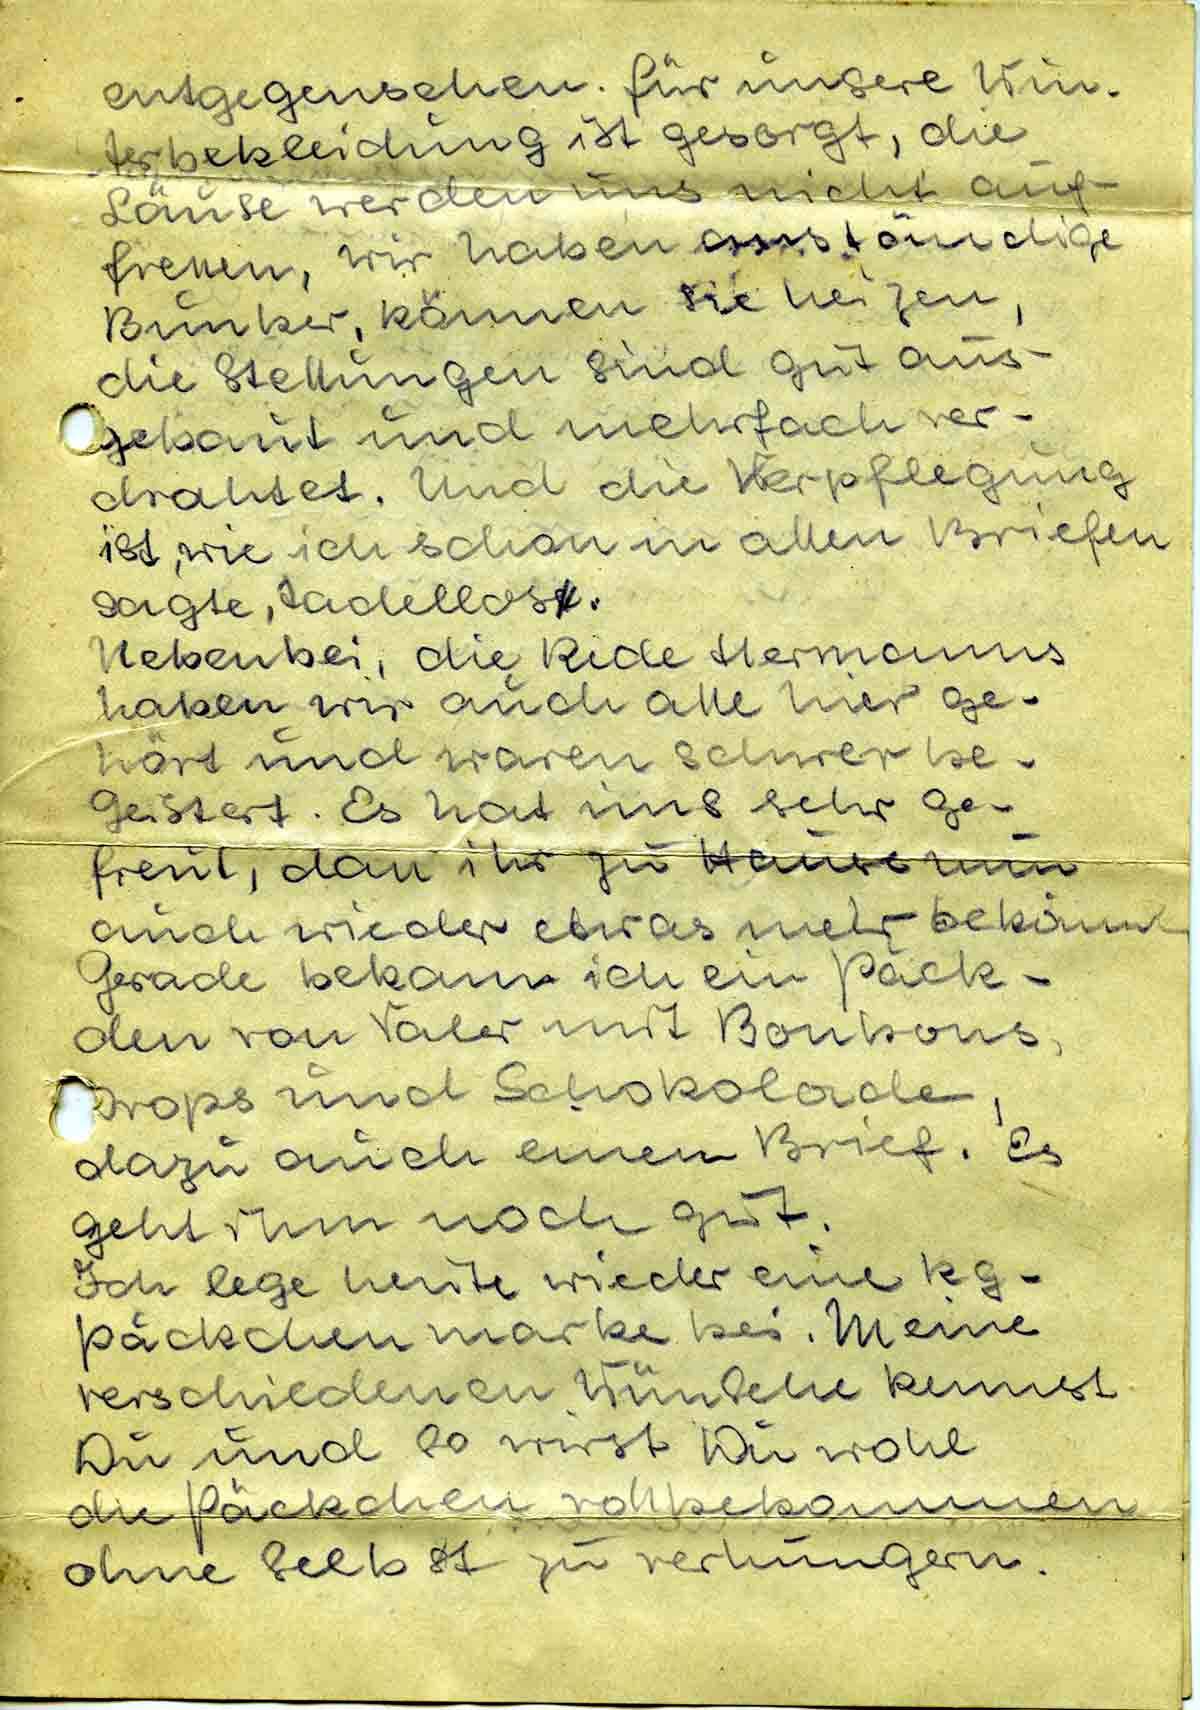 entgegensehen. Für unsere Win-
terbekleidung ist gesorgt, die
Läuse werden uns nicht auf-
fressen, wir haben anständige
Bunker, können sie heizen,
die Stellungen sind gut aus-
gebaut und mehrfach ver-
drahtet. Und die Verpflegung
ist, wie ich schon in allen Briefen
sagte, tadellos.
Nebenbei, die Rede Hermanns
haben wir auch alle hier ge-
hört und waren schwer be-
geistert. Es hat uns sehr ge-
freut, dass ihr zu Hause nun
auch wieder etwas mehr bekommt
Gerade bekam ich ein Päck-
chen von Vater mit Bonbons,
Drops und Schokolade,
dazu auch einen Brief. Es
geht ihm noch gut.
Ich lege heute wieder eine kg-
päckchenmarke bei. Meine
verschiedenen Wünsche kennst
Du und so wirst Du wohl
die Päckchen vollbekommen
ohne selbst zu verhungern.